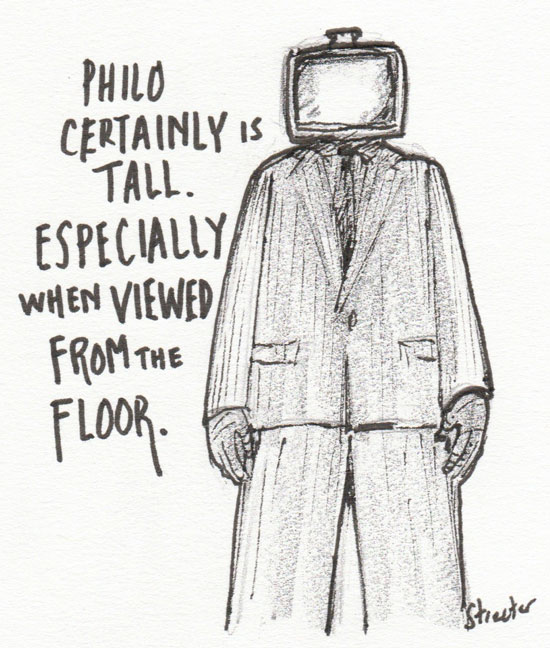 PHILO
CERTAINLY IS
TALL.
ESPECIALLY
WHEN VIEWED
FROM THE
FLOOR.
Streeter